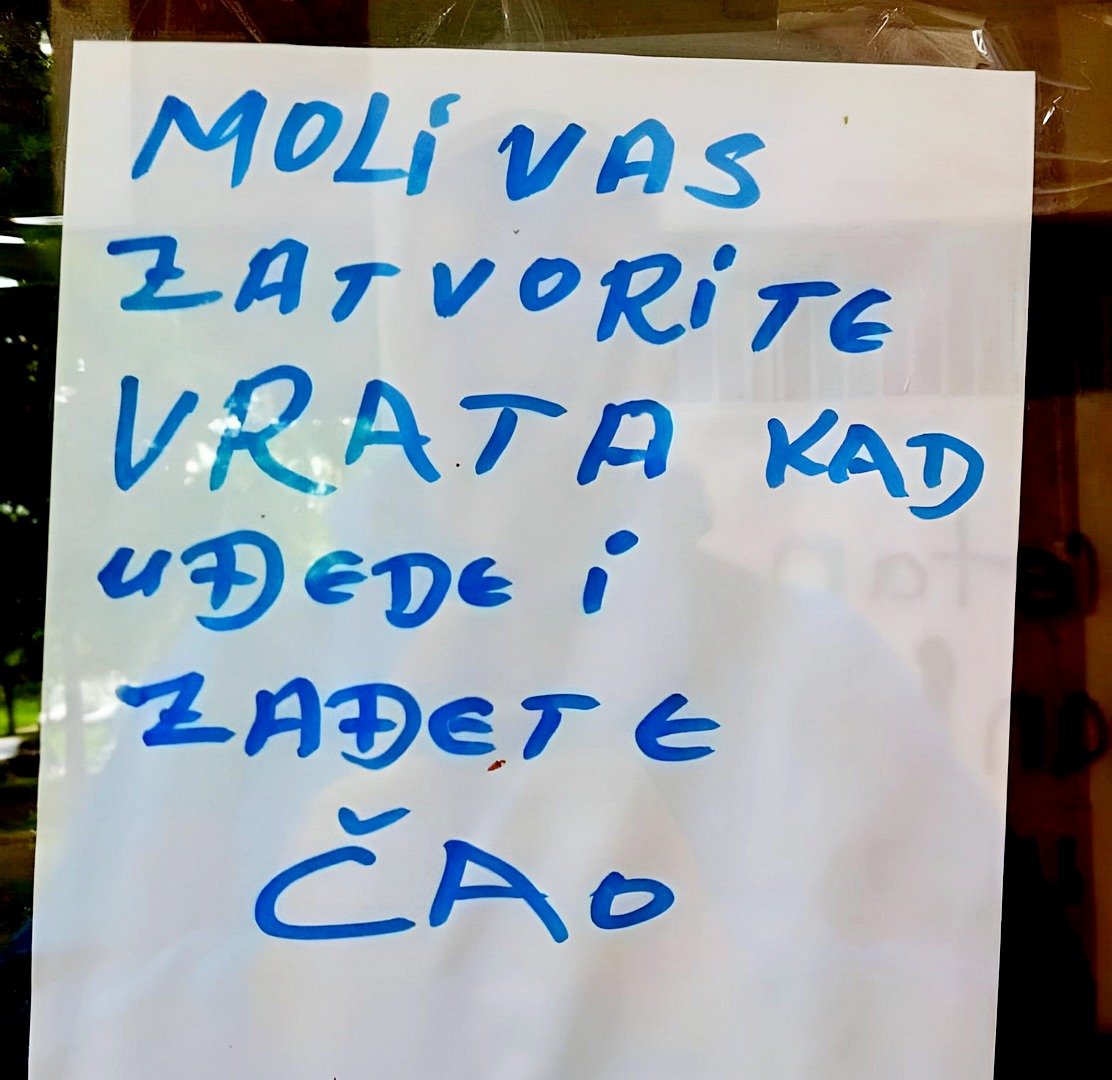 MOLi VAS
ZATVORiTE
VRATA KAD
UĐEDE i
ZAĐETE
ČAO